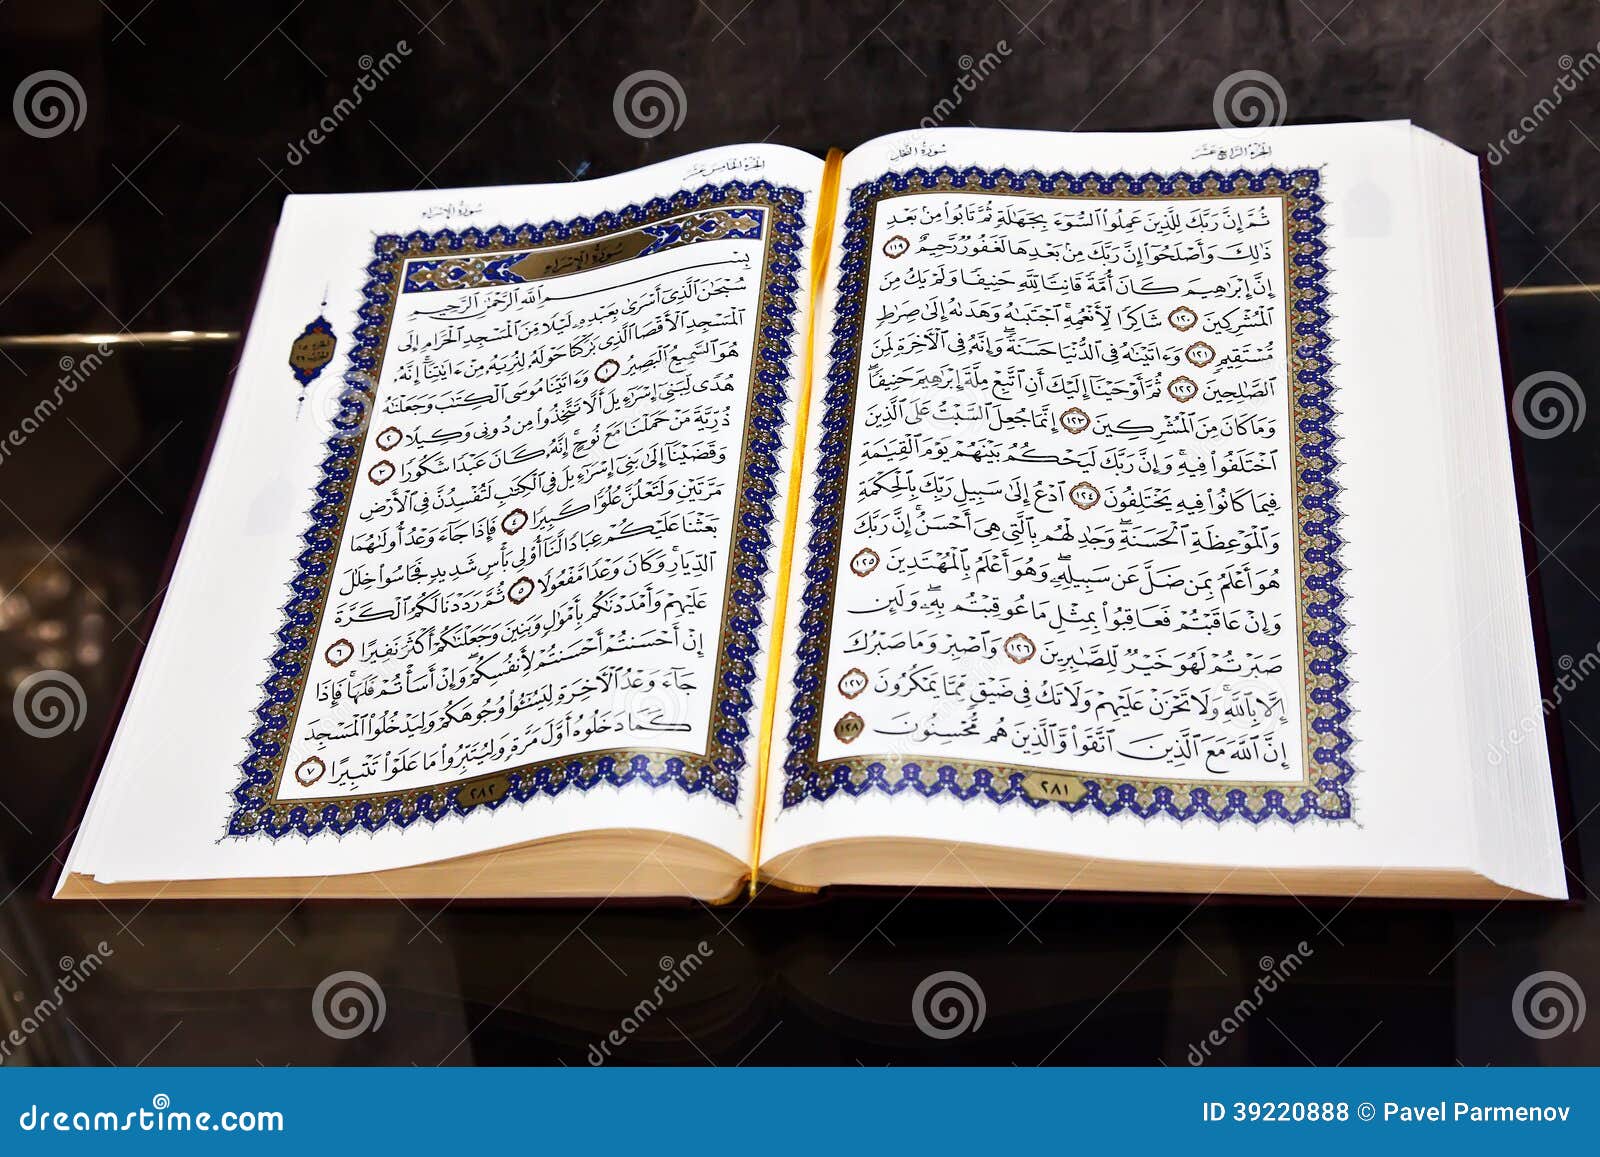 الجزء الرابع عشر
سورة النحل
ثُمَّ إِنَّ رَبَّكَ لِلَّذِينَ عَمِلُوا۟ ٱلسُّوٓءَ بِجَهَٰلَةٍ ثُمَّ تَابُوا۟ مِنۢ بَعْدِ
ذَٰلِكَ وَأَصْلَحُوٓا۟ إِنَّ رَبَّكَ مِنۢ بَعْدِهَا لَغَفُورٌ رَّحِيمٌ ١١٩
إِنَّ إِبْرَٰهِيمَ كَانَ أُمَّةً قَانِتًا لِّلَّهِ حَنِيفًا وَلَمْ يَكُ مِنَ
ٱلْمُشْرِكِينَ ١٢٠ شَاكِرًا لِّأَنْعُمِهِ ۚ ٱجْتَبَىٰهُ وَهَدَىٰهُ إِلَىٰ صِرَٰطٍ
مُّسْتَقِيمٍ ١٢١ وَءَاتَيْنَٰهُ فِى ٱلدُّنْيَا حَسَنَةً ۖ وَإِنَّهُۥ فِى ٱلْءَاخِرَةِ لَمِنَ
ٱلصَّٰلِحِينَ ١٢٢ ثُمَّ أَوْحَيْنَآ إِلَيْكَ أَنِ ٱتَّبِعْ مِلَّةَ إِبْرَٰهِيمَ حَنِيفًا ۖ
وَمَا كَانَ مِنَ ٱلْمُشْرِكِينَ ١٢٣ إِنَّمَا جُعِلَ ٱلسَّبْتُ عَلَى ٱلَّذِينَ
ٱخْتَلَفُوا۟ فِيهِ ۚ وَإِنَّ رَبَّكَ لَيَحْكُمُ بَيْنَهُمْ يَوْمَ ٱلْقِيَٰمَةِ
فِيمَا كَانُوا۟ فِيهِ يَخْتَلِفُونَ ١٢٤ ٱدْعُ إِلَىٰ سَبِيلِ رَبِّكَ بِٱلْحِكْمَةِ
وَٱلْمَوْعِظَةِ ٱلْحَسَنَةِ ۖ وَجَٰدِلْهُم بِٱلَّتِى هِىَ أَحْسَنُ ۚ إِنَّ رَبَّكَ
هُوَ أَعْلَمُ بِمَن ضَلَّ عَن سَبِيلِهِۦ ۖ وَهُوَ أَعْلَمُ بِٱلْمُهْتَدِينَ ١٢٥
وَإِنْ عَاقَبْتُمْ فَعَاقِبُوا۟ بِمِثْلِ مَا عُوقِبْتُم بِهِۦ ۖ وَلَئِن
صَبَرْتُمْ لَهُوَ خَيْرٌ لِّلصَّٰبِرِينَ ١٢٦ وَٱصْبِرْ وَمَا صَبْرُكَ
إِلَّا بِٱللَّهِ ۚ وَلَا تَحْزَنْ عَلَيْهِمْ وَلَا تَكُ فِى ضَيْقٍ مِّمَّا يَمْكُرُونَ ١٢٧
إِنَّ ٱللَّهَ مَعَ ٱلَّذِينَ ٱتَّقَوا۟ وَّٱلَّذِينَ هُم مُّحْسِنُونَ ١٢٨
٢٨١
الجزء الخامس عشر
سورة الإسراء
سورة الإسراء
بِسْمِ ٱللَّهِ ٱلرَّحْمَٰنِ ٱلرَّحِيمِ
سُبْحَٰنَ ٱلَّذِىٓ أَسْرَىٰ بِعَبْدِهِۦ لَيْلًا مِّنَ ٱلْمَسْجِدِ ٱلْحَرَامِ إِلَى
ٱلْمَسْجِدِ ٱلْأَقْصَا ٱلَّذِى بَٰرَكْنَا حَوْلَهُۥ لِنُرِيَهُۥ مِنْ ءَايَٰتِنَآ ۚ إِنَّهُۥ
هُوَ ٱلسَّمِيعُ ٱلْبَصِيرُ ١ وَءَاتَيْنَا مُوسَى ٱلْكِتَٰبَ وَجَعَلْنَٰهُ
هُدًى لِّبَنِىٓ إِسْرَٰٓءِيلَ أَلَّا تَتَّخِذُوا۟ مِن دُونِى وَكِيلًا ٢
ذُرِّيَّةَ مَنْ حَمَلْنَا مَعَ نُوحٍ ۚ إِنَّهُۥ كَانَ عَبْدًا شَكُورًا ٣
وَقَضَيْنَآ إِلَىٰ بَنِىٓ إِسْرَٰٓءِيلَ فِى ٱلْكِتَٰبِ لَتُفْسِدُنَّ فِى ٱلْأَرْضِ
مَرَّتَيْنِ وَلَتَعْلُنَّ عُلُوًّا كَبِيرًا ٤ فَإِذَا جَآءَ وَعْدُ أُولَىٰهُمَا
بَعَثْنَا عَلَيْكُمْ عِبَادًا لَّنَآ أُو۟لِى بَأْسٍ شَدِيدٍ فَجَاسُوا۟ خِلَٰلَ
ٱلدِّيَارِ ۚ وَكَانَ وَعْدًا مَّفْعُولًا ٥ ثُمَّ رَدَدْنَا لَكُمُ ٱلْكَرَّةَ
عَلَيْهِمْ وَأَمْدَدْنَٰكُم بِأَمْوَٰلٍ وَبَنِينَ وَجَعَلْنَٰكُمْ أَكْثَرَ نَفِيرًا ٦
إِنْ أَحْسَنتُمْ أَحْسَنتُمْ لِأَنفُسِكُمْ ۖ وَإِنْ أَسَأْتُمْ فَلَهَا ۚ فَإِذَا
جَآءَ وَعْدُ ٱلْءَاخِرَةِ لِيَسُۥٓـُٔوا۟ وُجُوهَكُمْ وَلِيَدْخُلُوا۟ ٱلْمَسْجِدَ
كَمَا دَخَلُوهُ أَوَّلَ مَرَّةٍ وَلِيُتَبِّرُوا۟ مَا عَلَوْا۟ تَتْبِيرًا ٧
٢٨٢
الجزء ١٥
الحزب ٢٩
dreamstime.com
ID 39220888 © Pavel Parmenov